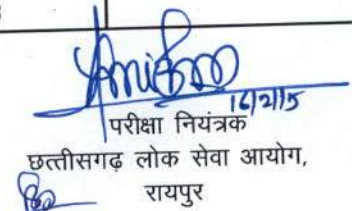 16/2/15
परीक्षा नियंत्रक
छत्तीसगढ़ लोक सेवा आयोग,
रायपुर